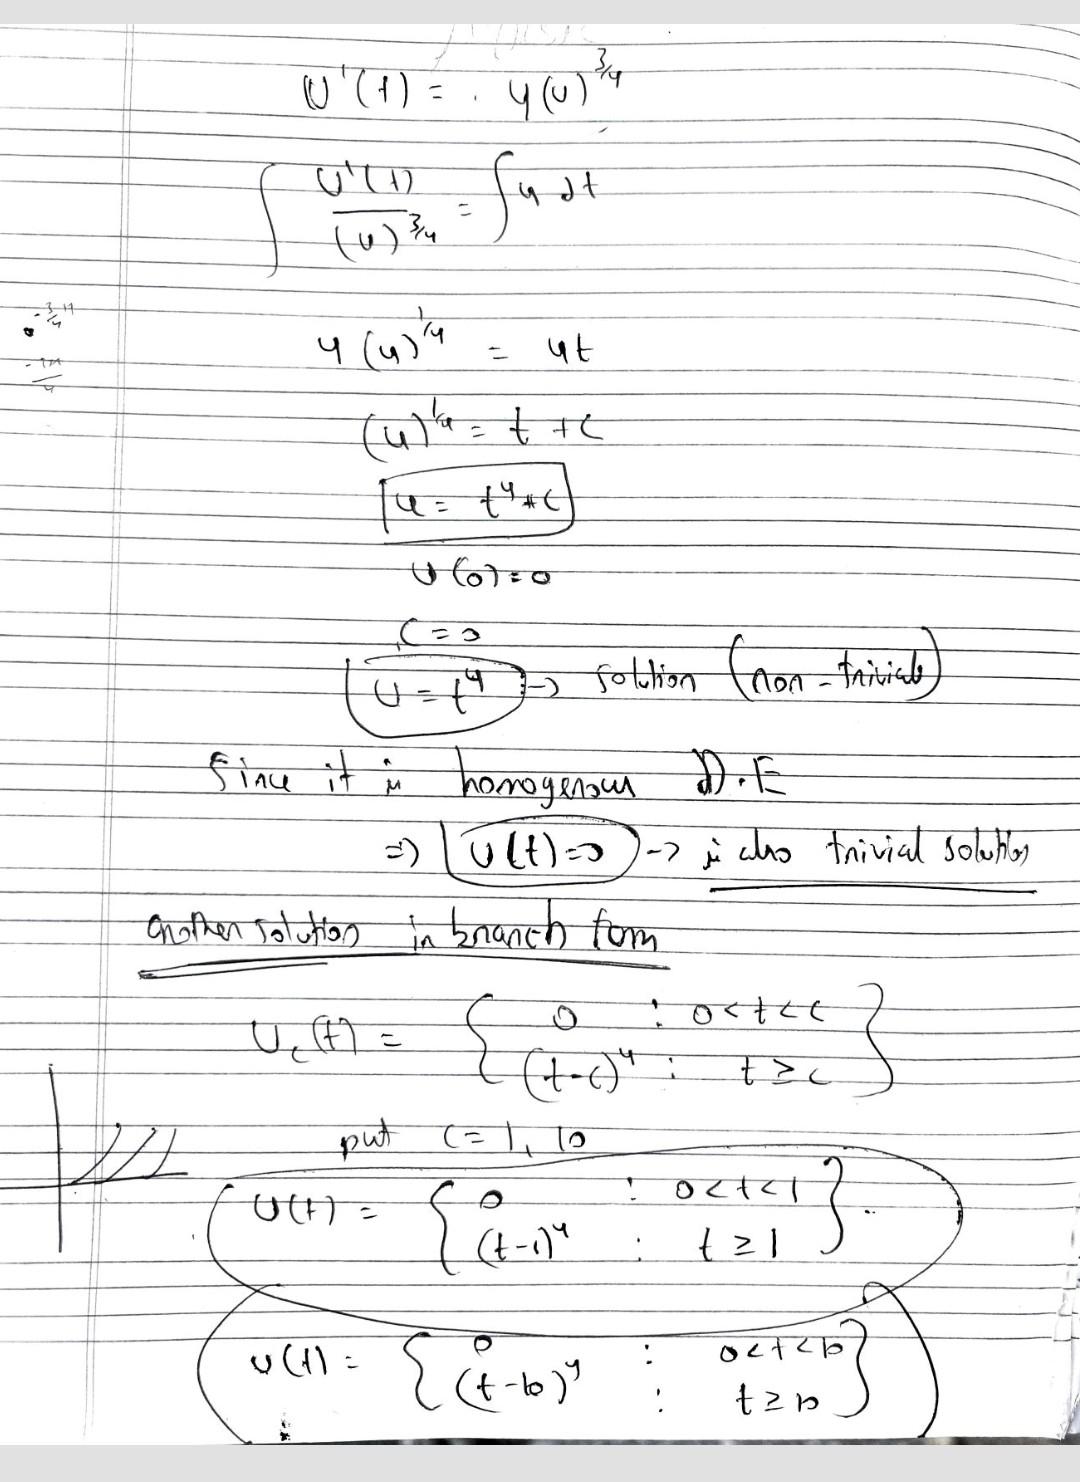 u'(t) = 4(u)^3/4
∫ u'(t) / (u)^3/4 = ∫4 dt
4(u)^1/4 = 4t
(u)^1/4 = t + c
u = t^4 + c
u(0) = 0
c = 0
u = t^4 -> solution (non-trivial)
Since it is homogenous D.E
=> u(t) = 0 -> is also trivial solution
another solution in branch form
u_c(t) = { 0 : 0<t<c
(t-c)^4 : t≥c }
put c = 1, 10
u(t) = { 0 : 0<t<1
(t-1)^4 : t≥1 }
u(t) = { 0 : 0<t<10
(t-10)^4 : t≥10 }